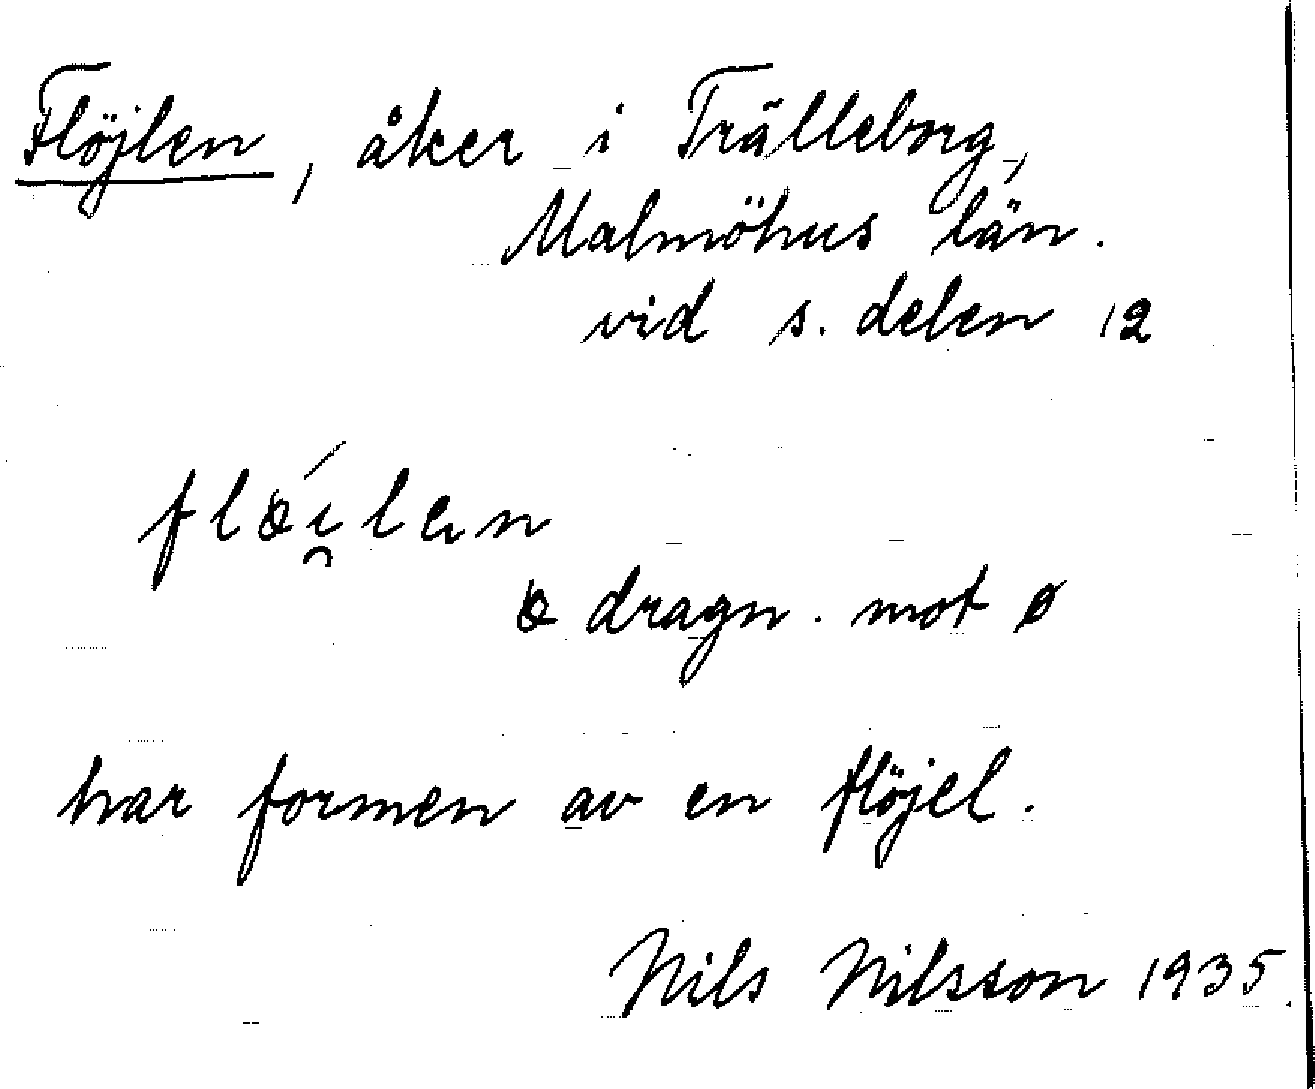 Flöjlen, åker i Trälleborg,
Malmöhus län.
vid s. delen 12
har formen av en flöjel.
dragn. mot ø
Nils Nilsson 1935.